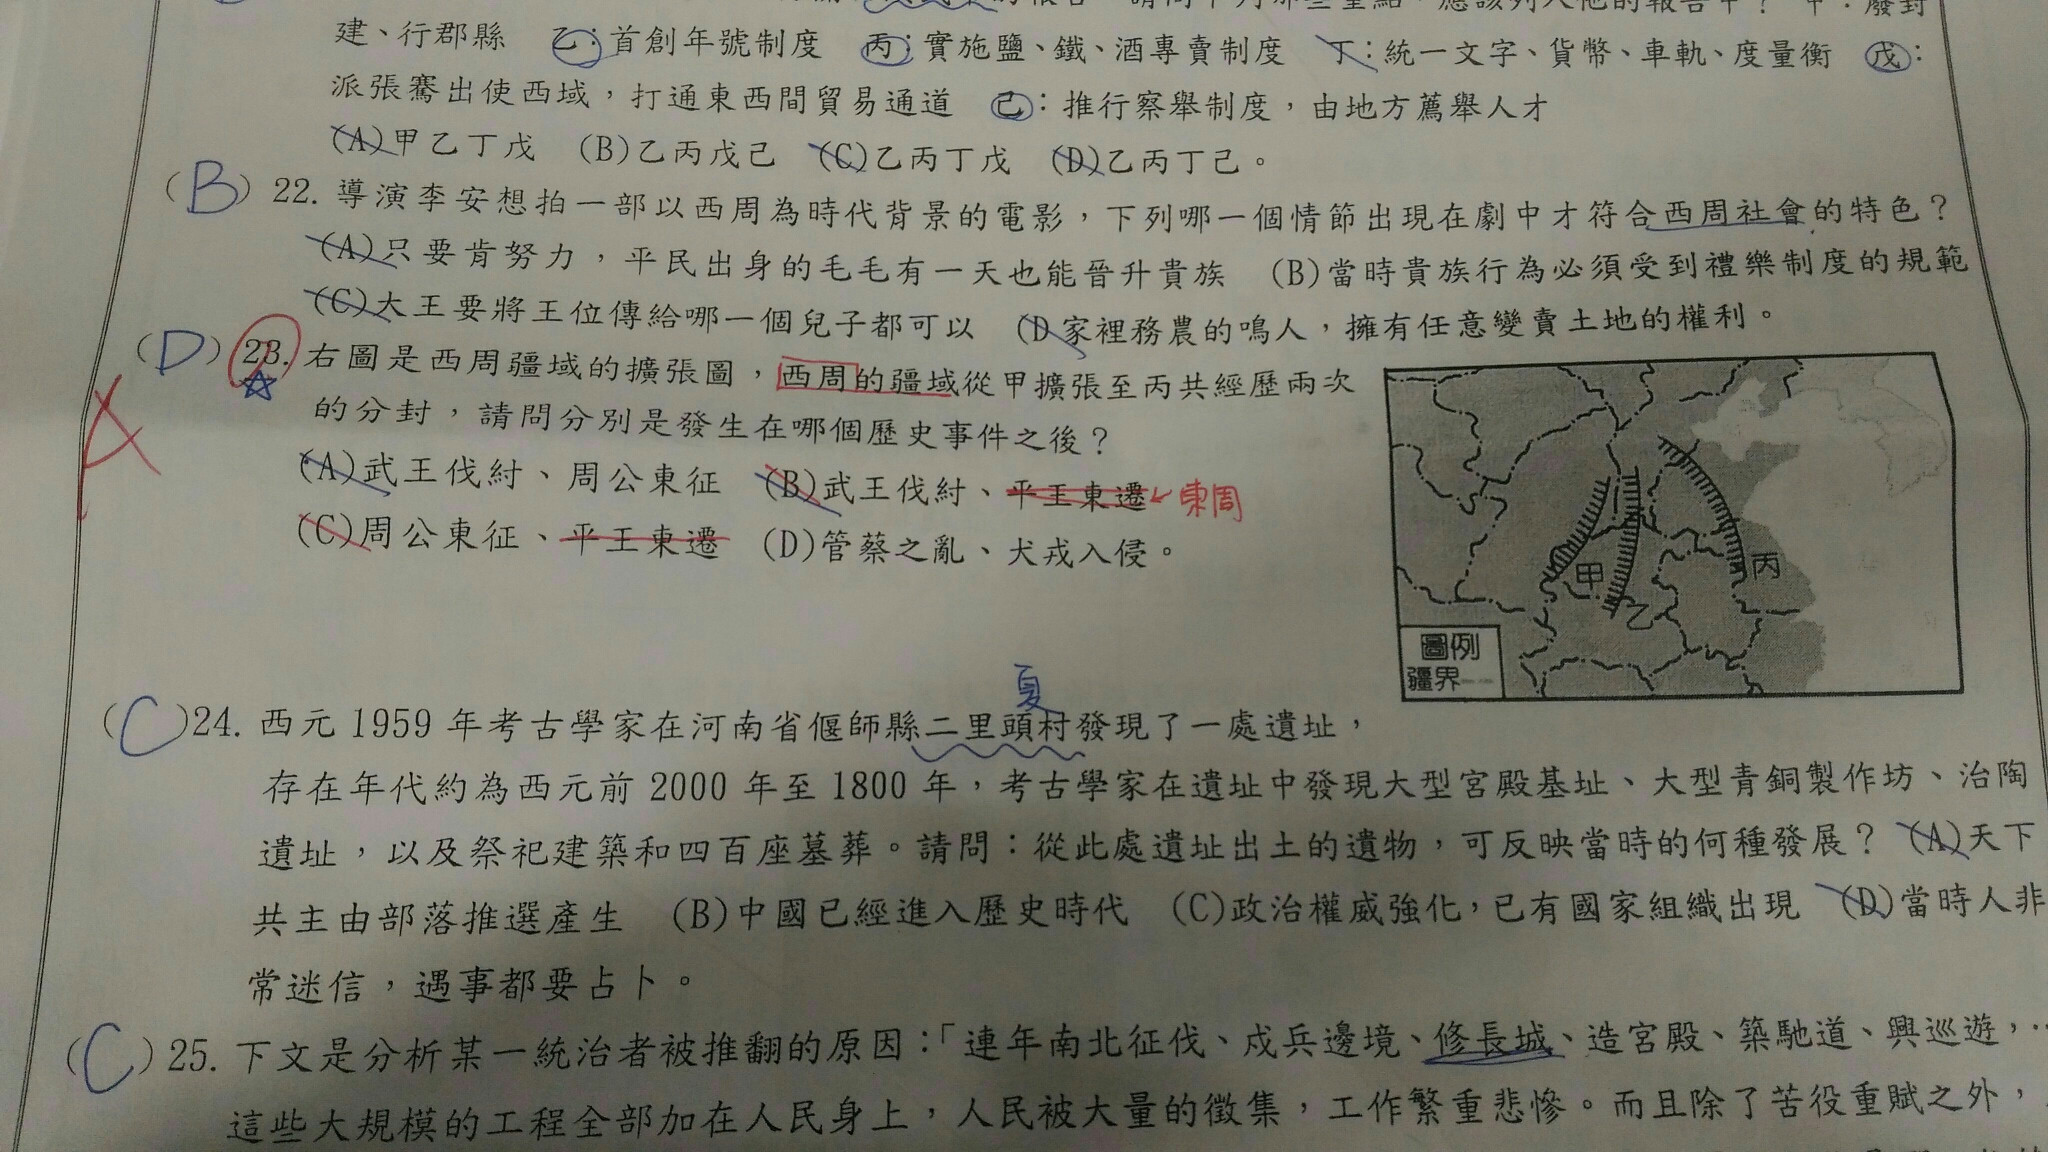 報告 請問下列哪些重點,應該列入他的報告中? 甲:廢封
建、行郡縣 乙:首創年號制度 丙:實施鹽、鐵、酒專賣制度 丁:統一文字、貨幣、車軌、度量衡 戊:
派張騫出使西域,打通東西間貿易通道 己:推行察舉制度,由地方薦舉人才
(A)甲乙丁戊 (B)乙丙戊己 (C)乙丙丁戊 (D)乙丙丁己。
(B)22.導演李安想拍一部以西周為時代背景的電影,下列哪一個情節出現在劇中才符合西周社會的特色?
(A)只要肯努力,平民出身的毛毛有一天也能晉升貴族 (B)當時貴族行為必須受到禮樂制度的規範
(C)大王要將王位傳給哪一個兒子都可以 (D)家裡務農的鳴人,擁有任意變賣土地的權利。
(D)23.右圖是西周疆域的擴張圖,西周的疆域從甲擴張至丙共經歷兩次
A
的分封,請問分別是發生在哪個歷史事件之後?
(A)武王伐紂、周公東征 (B)武王伐紂、平王東遷 東周
(C)周公東征、平王東遷 (D)管蔡之亂、犬戎入侵。
甲
丙
乙
圖例
疆界
夏
(C)24.西元1959年考古學家在河南省偃師縣二里頭村發現了一處遺址,
存在年代約為西元前2000年至1800年,考古學家在遺址中發現大型宮殿基址、大型青銅製作坊、治陶
遺址,以及祭祀建築和四百座墓葬。請問:從此處遺址出土的遺物,可反映當時的何種發展? (A)天下
共主由部落推選產生 (B)中國已經進入歷史時代 (C)政治權威強化,已有國家組織出現 (D)當時人非
常迷信,遇事都要占卜。
(C)25.下文是分析某一統治者被推翻的原因:「連年南北征伐、戍兵邊境、修長城、造宮殿、築馳道、興巡遊,…
這些大規模的工程全部加在人民身上,人民被大量的徵集,工作繁重悲慘。而且除了苦役重賦之外,